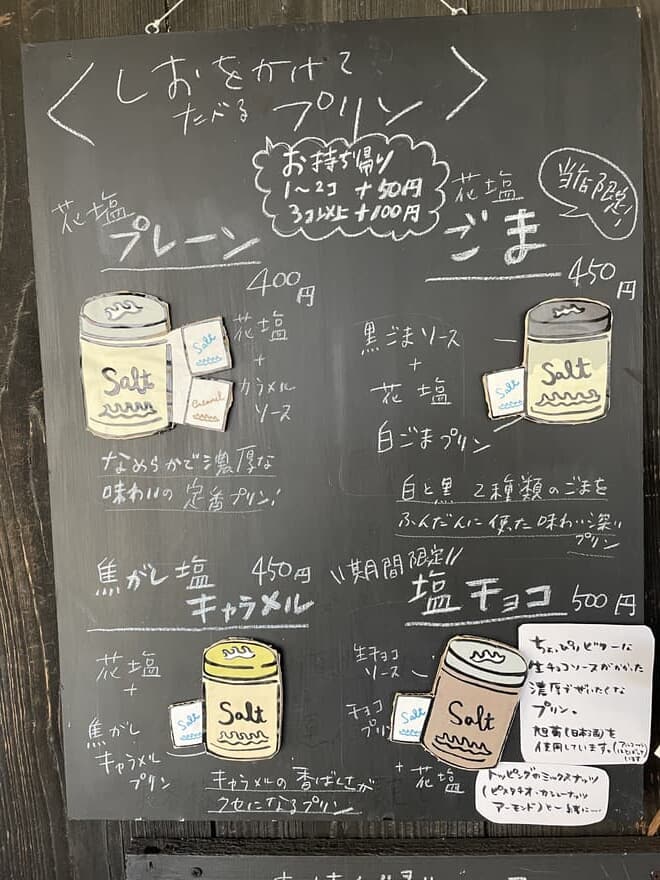 しおをかけて
たべる プリン
お持ち帰り
1〜2コ +50円
3コ以上 +100円
花塩
プレーン
400円
Salt
Salt
Caramel
花塩
+
カラメル
ソース
なめらかで濃厚な
味わいの 定番プリン!
当店限定!
花塩
ごま
450円
黒ごまソース
+
花塩
白ごまプリン
Salt
Salt
白と黒 2種類のごまを
ふんだんに使った味わい深い
プリン
焦がし塩
キャラメル
450円
花塩
+
焦がし
キャラメル
プリン
Salt
Salt
キャラメルの香ばしさが
クセになるプリン
\\期間限定//
塩チョコ 500円
生チョコ
ソース
チョコ
プリン
+ 花塩
Salt
Salt
ちょっぴりビターな
生チョコソースがかかった
濃厚でぜいたくな
プリン。
(日本酒)を
使用しています。
トッピングのミックスナッツ
(ピスタチオ・カシューナッツ
アーモンド)と一緒に…